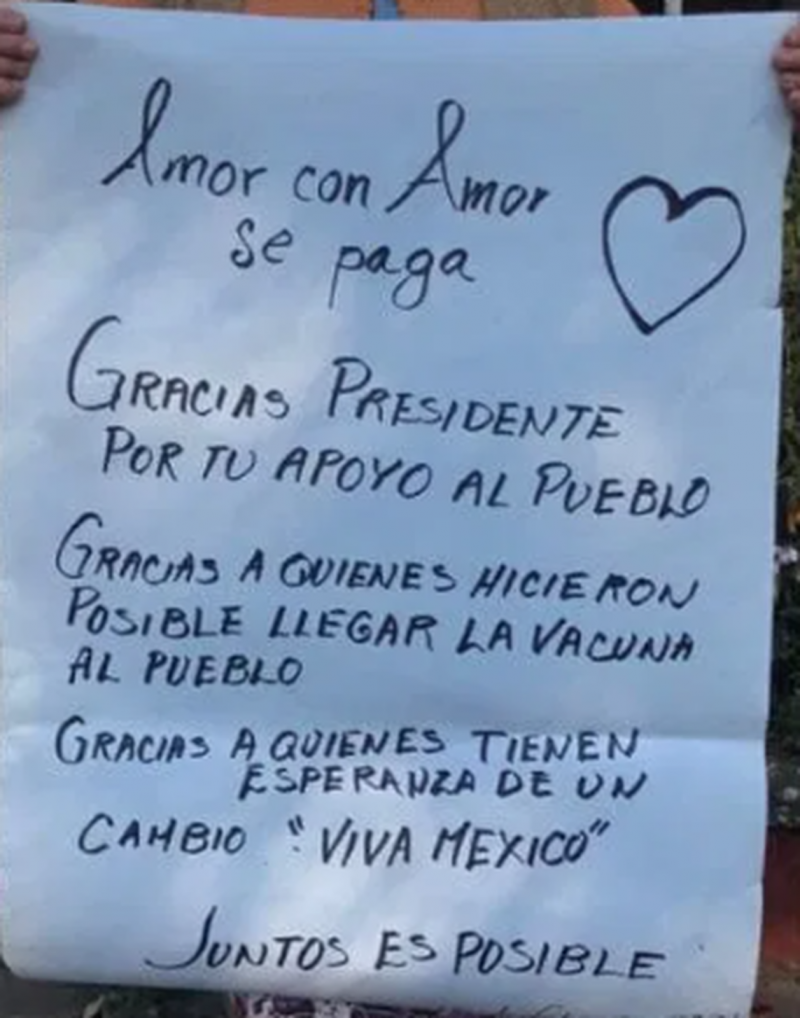 Amor con Amor
se paga
GRACIAS PRESIDENTE
POR TU APOYO AL PUEBLO
GRACIAS A QUIENES HICIERON
POSIBLE LLEGAR LA VACUNA
AL PUEBLO
GRACIAS A QUIENES TIENEN
ESPERANZA DE UN
CAMBIO "VIVA MEXICO"
JUNTOS ES POSIBLE